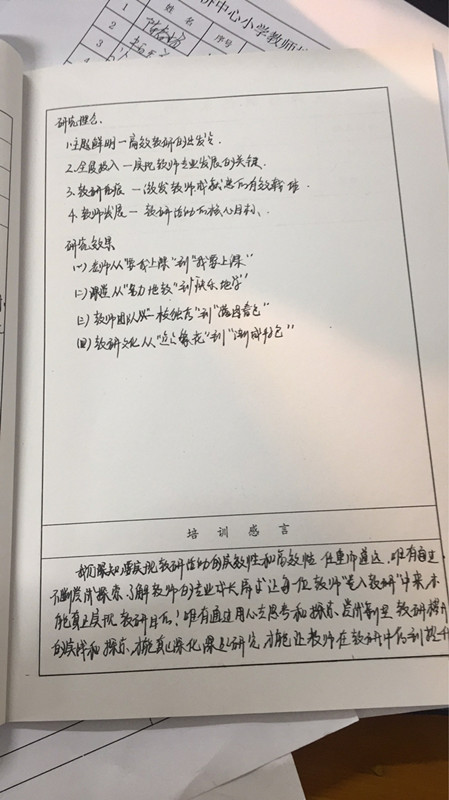 济中心小学教师
姓名
序号
1
2
3
研究理念:
1.主题鲜明—高效教研的出发点.
2.全员投入—展现教师专业发展的关键.
3.教研 —激发教师 有效
4.教师发展—教研活动的核心目标.
研究效果
(一)老师从“要我上课”到“我要上课”
(二)课堂从“ 地教”到“快乐地学”
(三)教师团队从“一枝独秀”到“满园春色”
(四)教研文化从“ ”到“渐成特色”
培训感言
我们深知要实现教研活动的实效性和高效性 任重而道远.唯有通过
不断尝试探索,了解教师的专业成长需求,让每位教师“卷入教研”中来,才
能真正实现教研目的!唯有通过用心去思考和探索、尝试 教研
的 和探索,才能真正深化课题研究,才能让教师在教研中得到提升